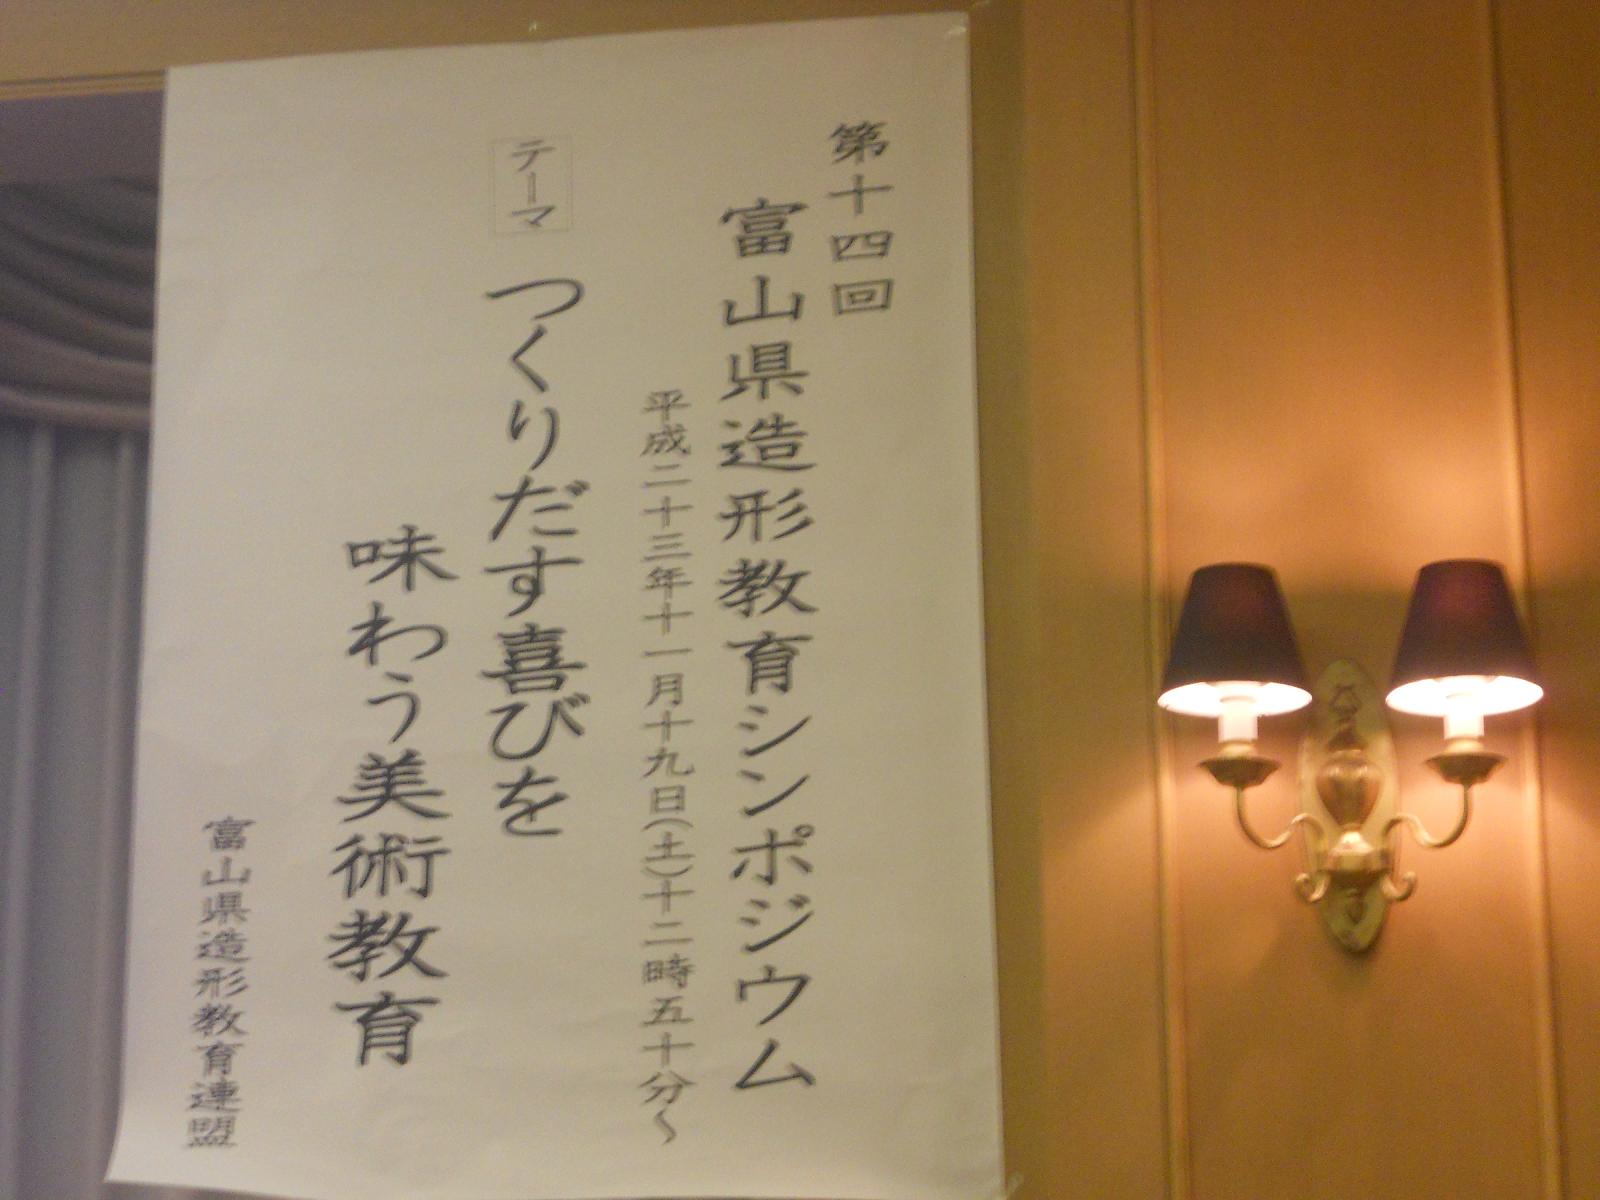 第十四回
富山県造形教育シンポジウム
平成二十三年十一月十九日(土)十二時五十分～
テーマ
つくりだす喜びを
味わう美術教育
富山県造形教育連盟